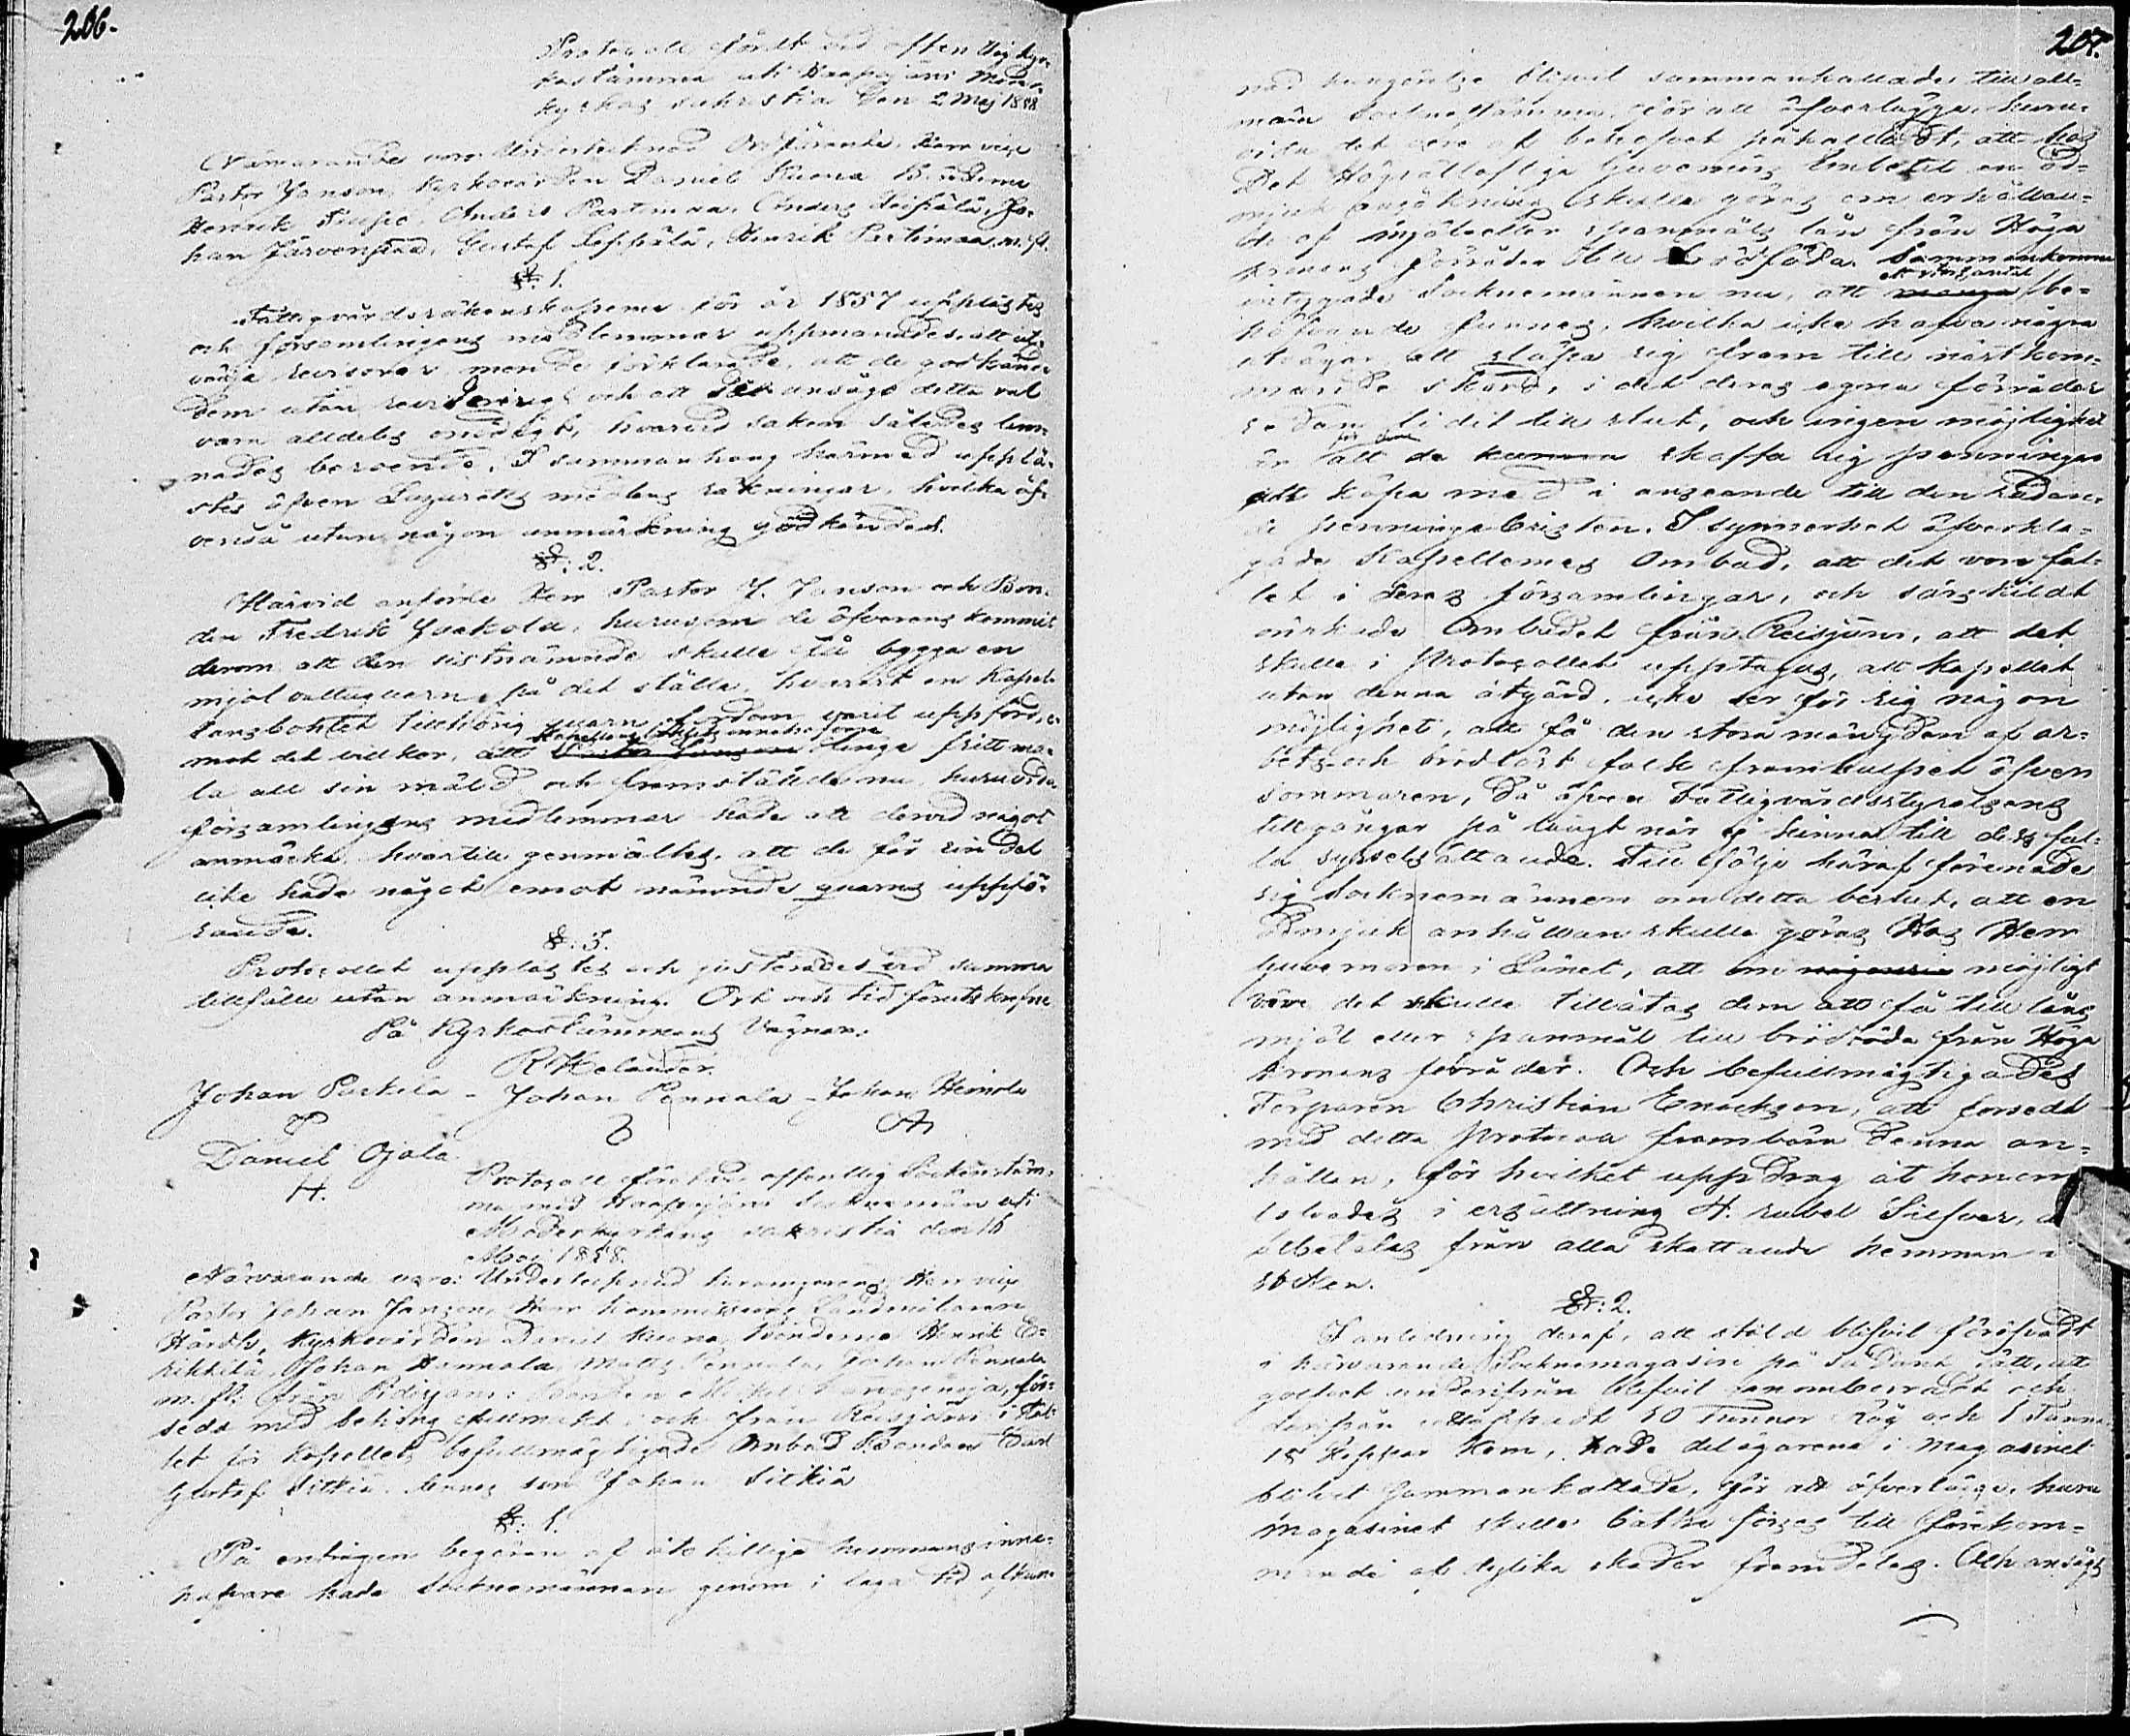 206.
Protocoll fördt vid offentlig kyr-
kostämma uti Haapajärvi Moder-
kyrkas sakristia den 2 Maj 1858
Närvarande voro Undertecknad Ordförande, Herr vice
Pastor Janson, Kyrkovärden Daniel Kuona Bönderne
Henrik Anders Partimaa, Anders Jo-
han Järvenpää, Gustaf Leppälä, Henrik Partimaa m. fl.
§. 1.
Fattigvårdsräkenskaperne för år 1857 upplästes
och församlingens medlemmar uppmanades, att ut-
välja revisorer, men de förklarade, att de godkände
dem utan revidering och att de ansågo detta val
vara alldeles onödigt, hvarvid saken således lem-
nades beroende. I sammanhang härmed upplä-
stes äfven Lazaretts medlens räkningar, hvilka öf-
verså utan någon anmärkning godkändes.
§: 2.
Härvid anförde Herr Pastor J. Janson och Bon-
den Fredrik Jockola, hurusom de öfverens kommit
derom att den sistnämnde skulle få bygga en
mjöl vattuqvarn på det ställe, hvarest en Kapel-
lansbohlet tillhörig qvarn fordom varit uppförd,
mot det vilkor, att Pastor Janson linge fritt ma-
la all sin mäld och framställde nu huruvida
församlingens medlemmar hade att dervid något
anmärka, hvartill genmältes, att de för sin del
icke hade något emot nämnde qvarns uppfö-
rande.
§: 3.
Protocollet upplästes och justerades vid samma
tillfälle utan anmärkning. Ort och tid förutskrefne
På Kyrkostämmans Vägnar:
R Helander.
Johan Parkila - Johan Pennala - Johan Heinola
Daniel Ojala
H.
Protocoll fördt vid offentlig Sockenstäm-
ma med Haapajärvi Socknemän uti
Moderkyrkans sakristia den 16
Maj 1858.
Närvarande voro: Undertecknad Herr vice
Pastor Johan Janson, Herr Kommissions Landtmätaren
Hårdh, Kyrkovärden Daniel Kuona, bönderne Henrik E-
rkkilä, Johan Hannala, Matts Pennala, Johan Pennala
m. fl. från Pidisjärvi: Bonden för-
sedd med behörig fullmakt och från Reisjärvi i stäl-
let för Kapellets befullmägtigade Ombud Bonden Carl
Gustaf Sitkiä dennes son Johan Sitkiä
§: 1.
På enträgen begäran af åtskillige hemmans inne-
hafvare hade Socknemännen genom i laga tid afkun-
207.
nad kungörelse blifvit sammankallade till all-
män Sockenstämma, för att öfverlägga, huru-
vida det vore af behofvet påkalladt, att hos
Det Högvällofliga Guvernörs Embetet en öd-
mjuk ansökning skulle göras om erhållan-
de af mjöl eller spannmåls lån från Höga
Kronans förråder till brödföda. Sammankomne
ett stort antal
intygade Socknemännen nu, att många be-
höfvande funnos, hvilka icke hafva några
utvägar att släpa sig fram till nästkom-
mande skörd, i det deras egna förråder
redan lidit till slut, och ingen möjlighet
för dem
är att de kunna skaffa sig penningar
att köpa med i anseende till den rådan-
de penningebristen. I synnerhet öfverkla-
gade Kapellernes Ombud, att det vore fal-
let i deras församlingar, och särskildt
önskade Ombudet från Reisjärvi, att det
skulle i Protocollet upptagas, att Kapellet
utan denna åtgärd, icke ser för sig någon
möjlighet, att få den stora mängden af ar-
bets- och brödlöst folk framhulpet öfver
sommaren, då äfven Fattigvårdsstyrelsens
tillgångar på långt när ej hinna till dess ful-
la sysselsättande. Till följe häraf förenade
sig Socknemännen om detta beslut, att en
ödmjuk anhållan skulle göras Hos Herr
Guvernören i Länet, att om någonsin möjligt
vore det skulle tillåtas dem att få till låns
mjöl eller spanmål till brödföda från Höga
Kronans förråder. Och befullmägtigades
Torparen Christian Enockson, att försedd
med detta Protocoll frambära denna an-
hållan, för hvilket uppdrag åt honom
lofvades i ersättning 4. rubel Silfver,
utbetalas från alla skattande hemman i
socken.
§: 2.
I anledning deraf, att stöld blifvit föröfvadt
i härvarande Socknemagasin på sådant sätt, att
golfvet underifrån blifvit genomborradt och
derifrån uttappadt 10 Tunnor Råg och 1 Tunna
15 Kappar Korn, hade delägarena i magasinet
blifvit sammankallade, för att öfverlägga, huru
magasinet skulle bättre förses till förekom-
mande af dylika skador framdeles. Och ansågs